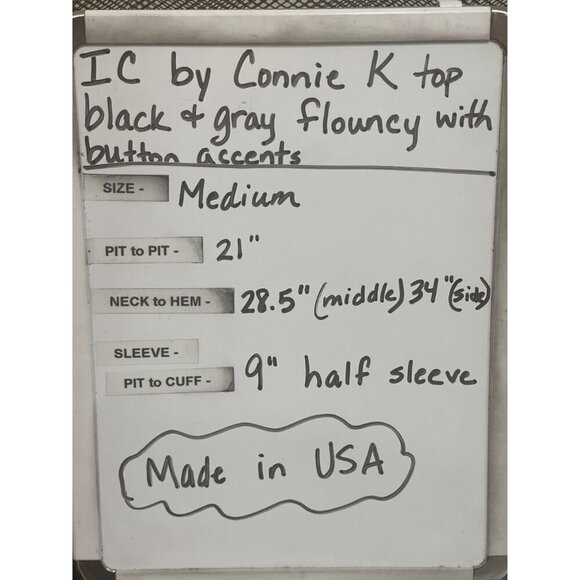 IC by Connie K top
black & gray flouncy with
button accents
SIZE - Medium
PIT to PIT - 21"
NECK to HEM - 28.5" (middle) 34" (side)
SLEEVE -
PIT to CUFF - 9" half sleeve
Made in USA